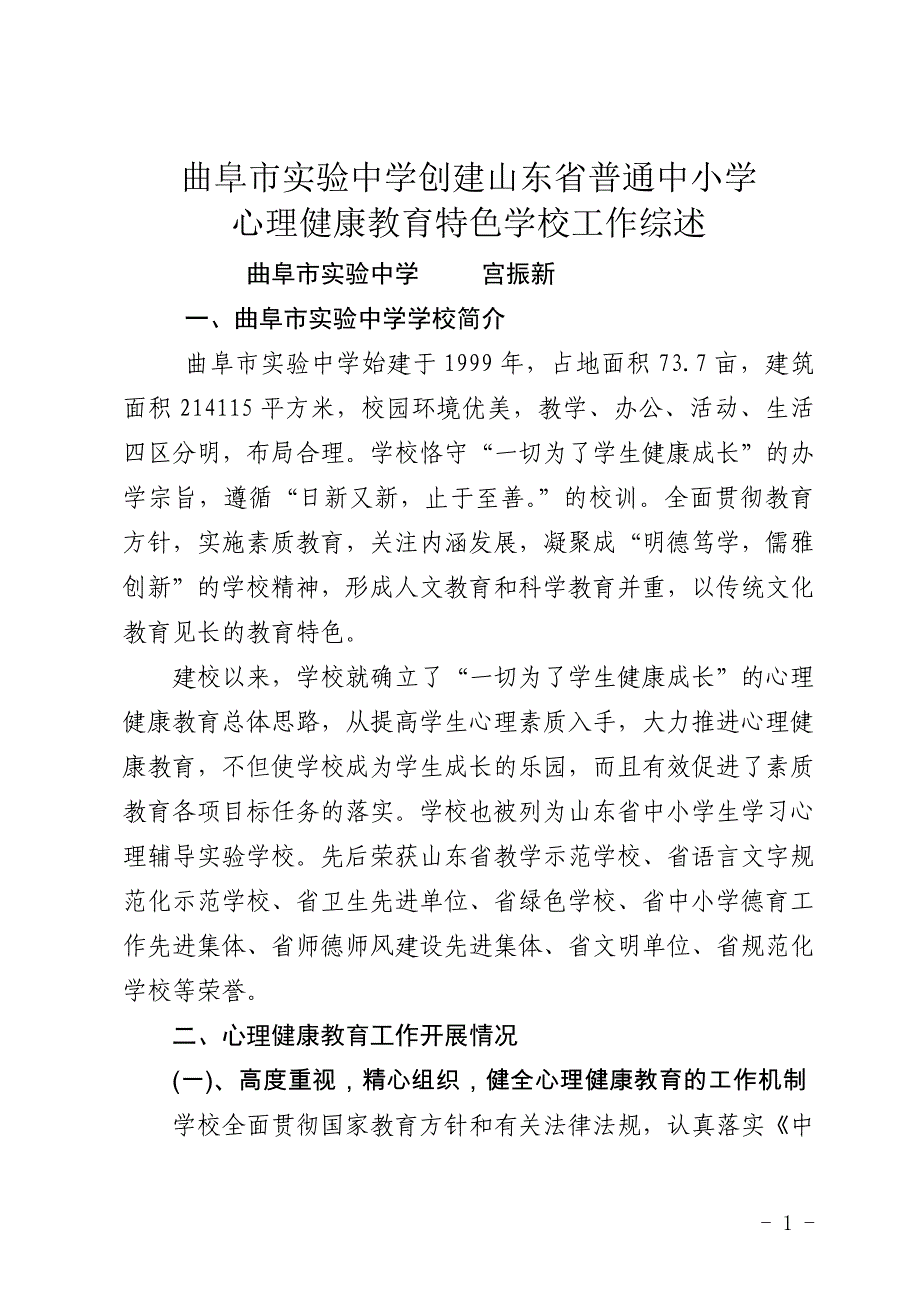 曲阜市实验中学创建山东省普通中小学
心理健康教育特色学校工作综述
曲阜市实验中学 宫振新
一、曲阜市实验中学学校简介
曲阜市实验中学始建于 1999 年，占地面积 73.7 亩，建筑
面积 214115 平方米，校园环境优美，教学、办公、活动、生活
四区分明，布局合理。学校恪守“一切为了学生健康成长”的办
学宗旨，遵循“日新又新，止于至善。”的校训。全面贯彻教育
方针，实施素质教育，关注内涵发展，凝聚成“明德笃学，儒雅
创新”的学校精神，形成人文教育和科学教育并重，以传统文化
教育见长的教育特色。
建校以来，学校就确立了“一切为了学生健康成长”的心理
健康教育总体思路，从提高学生心理素质入手，大力推进心理健
康教育，不但使学校成为学生成长的乐园，而且有效促进了素质
教育各项目标任务的落实。学校也被列为山东省中小学生学习心
理辅导实验学校。先后荣获山东省教学示范学校、省语言文字规
范化示范学校、省卫生先进单位、省绿色学校、省中小学德育工
作先进集体、省师德师风建设先进集体、省文明单位、省规范化
学校等荣誉。
二、心理健康教育工作开展情况
(一)、高度重视，精心组织，健全心理健康教育的工作机制
学校全面贯彻国家教育方针和有关法律法规，认真落实《中
- 1 -